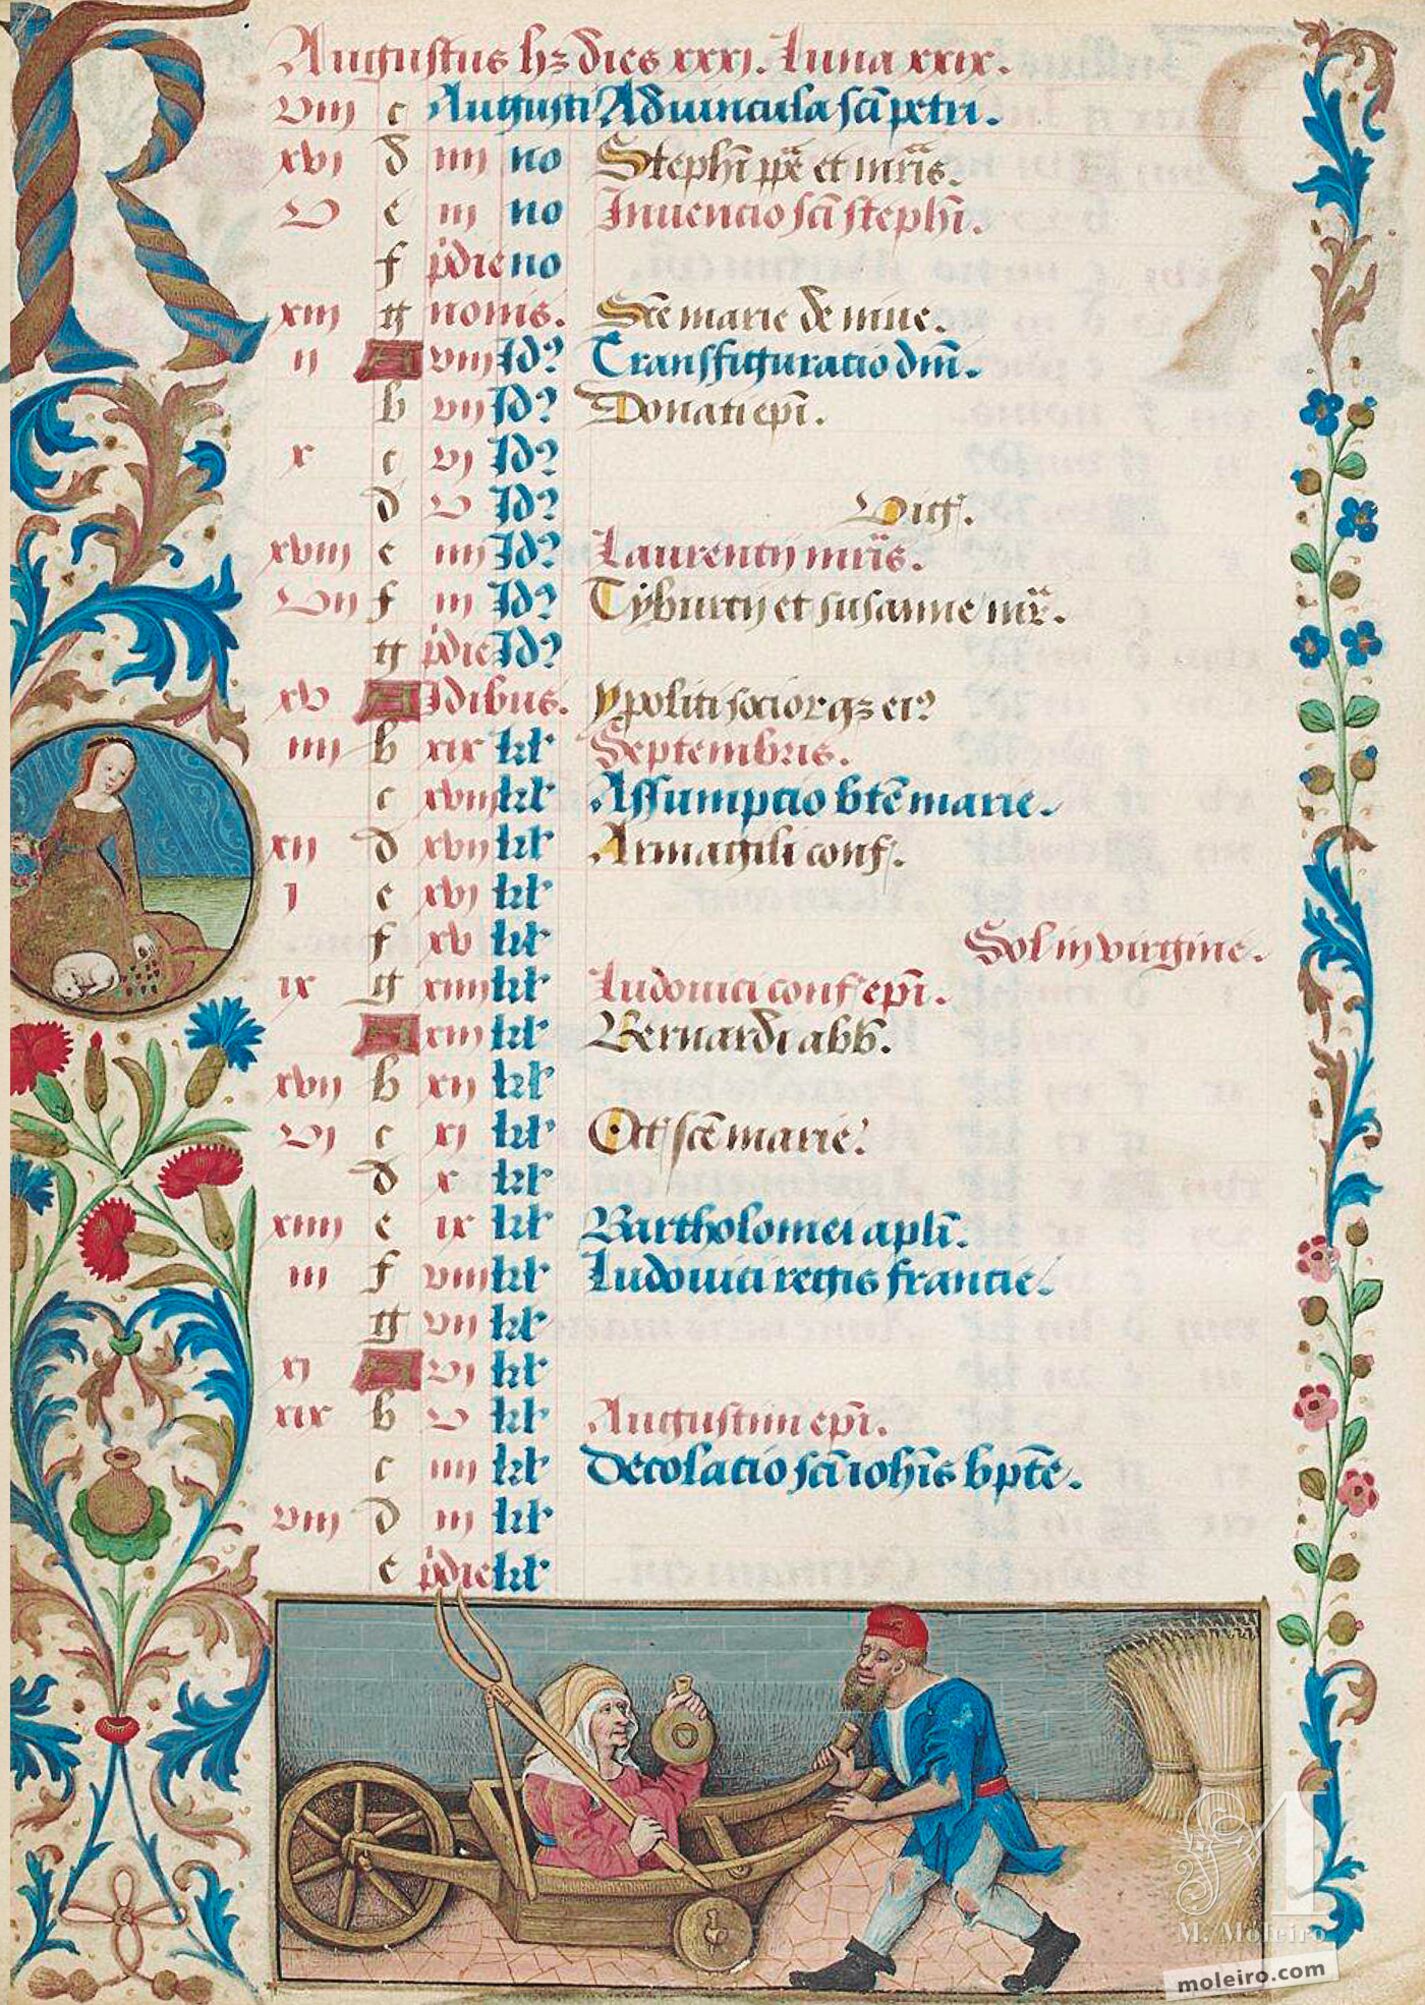 R
Augustus hz dies xxxi. Luna xxix.
viii c Augusti Ad vincula sci petri.
xvi d iiii no Stephi ppe et mris.
v e iii no Inuencio sci stephi.
f pdie no
xiii g nonis. Sce marie de niue.
ii A viii Id9 Transfiguratio dni.
b vii Id9 Donati epi.
x c vi Id9
d v Id9 Vigl.
xviii e iiii Id9 Laurentij mris.
vii f iii Id9 Tyburcij et susanne mr.
g pdie Id9
xv A Idibus. ypoliti sociorqz ei9
iiii b xix kl Septembris.
c xviii kl Assumpcio bte marie.
xii d xvii kl Armagili conf.
i e xvi kl
f xv kl Sol in virgine.
ix g xiiii kl Ludouici conf epi.
A xiii kl Bernardi abb.
xvii b xii kl
vi c xi kl Oct sce marie.
d x kl
xiiii e ix kl Bartholomei apli.
iii f viii kl Ludouici regis francie.
g vii kl
xi A vi kl
xix b v kl Augustini epi.
c iiii kl Decolacio sci iohis bpte.
viii d iii kl
e pdie kl
M. Moleiro
moleiro.com